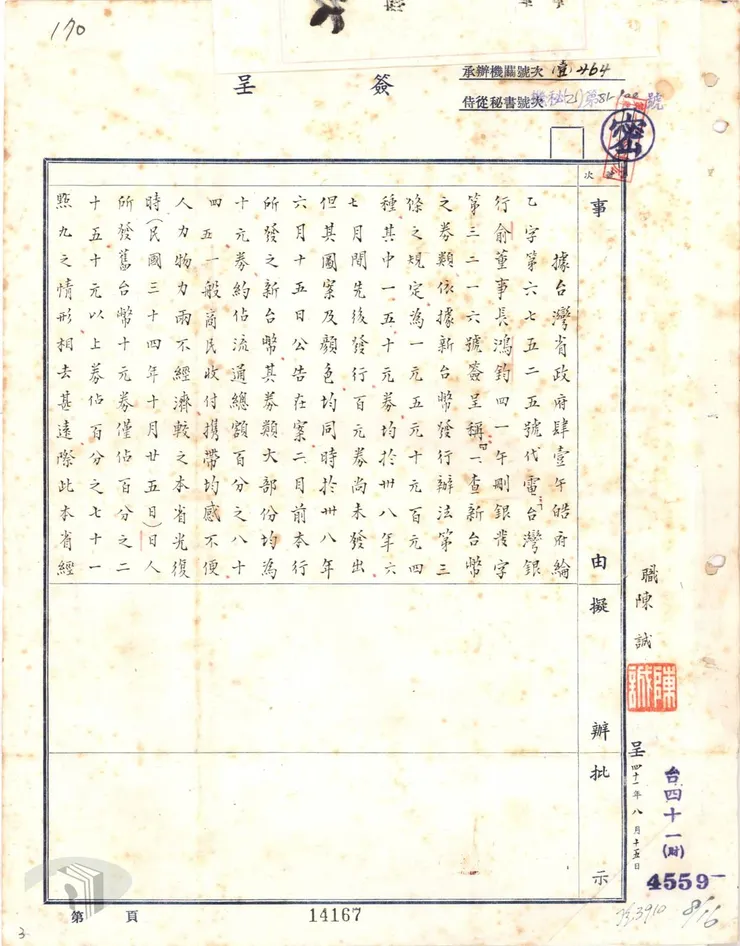 170
簽呈
承辦機關號次 (壹)464
侍從秘書號次 號
密
次
事由
擬辦
批示
據台灣省政府肆壹午皓府綸
乙字第六七五二五號代電台灣銀
行俞董事長鴻鈞四一午刪銀字
第三二一六號簽呈稱「一查新台幣
之券類依據新台幣發行辦法第三
條之規定為一元五元十元百元四
種其中一五十元券均於卅八年六
七月間先後發行百元券尚未發出
但其圖案及顏色均同時於卅八年
六月十五日公告在案二目前本行
所發之新台幣其券類大部份均為
十元券約佔流通總額百分之八十
四五一般商民收付携帶均感不便
人力物力兩不經濟較之本省光復
時(民國三十四年十月廿五日)日人
所發舊台幣十元券僅佔百分之二
十五十元以上券佔百分之七十一
點九之情形相去甚遠際此本省經
職陳誠
陳誠
呈 四十一年八月十五日
台四十一(財)
4559
8/16
第 頁
14167
3